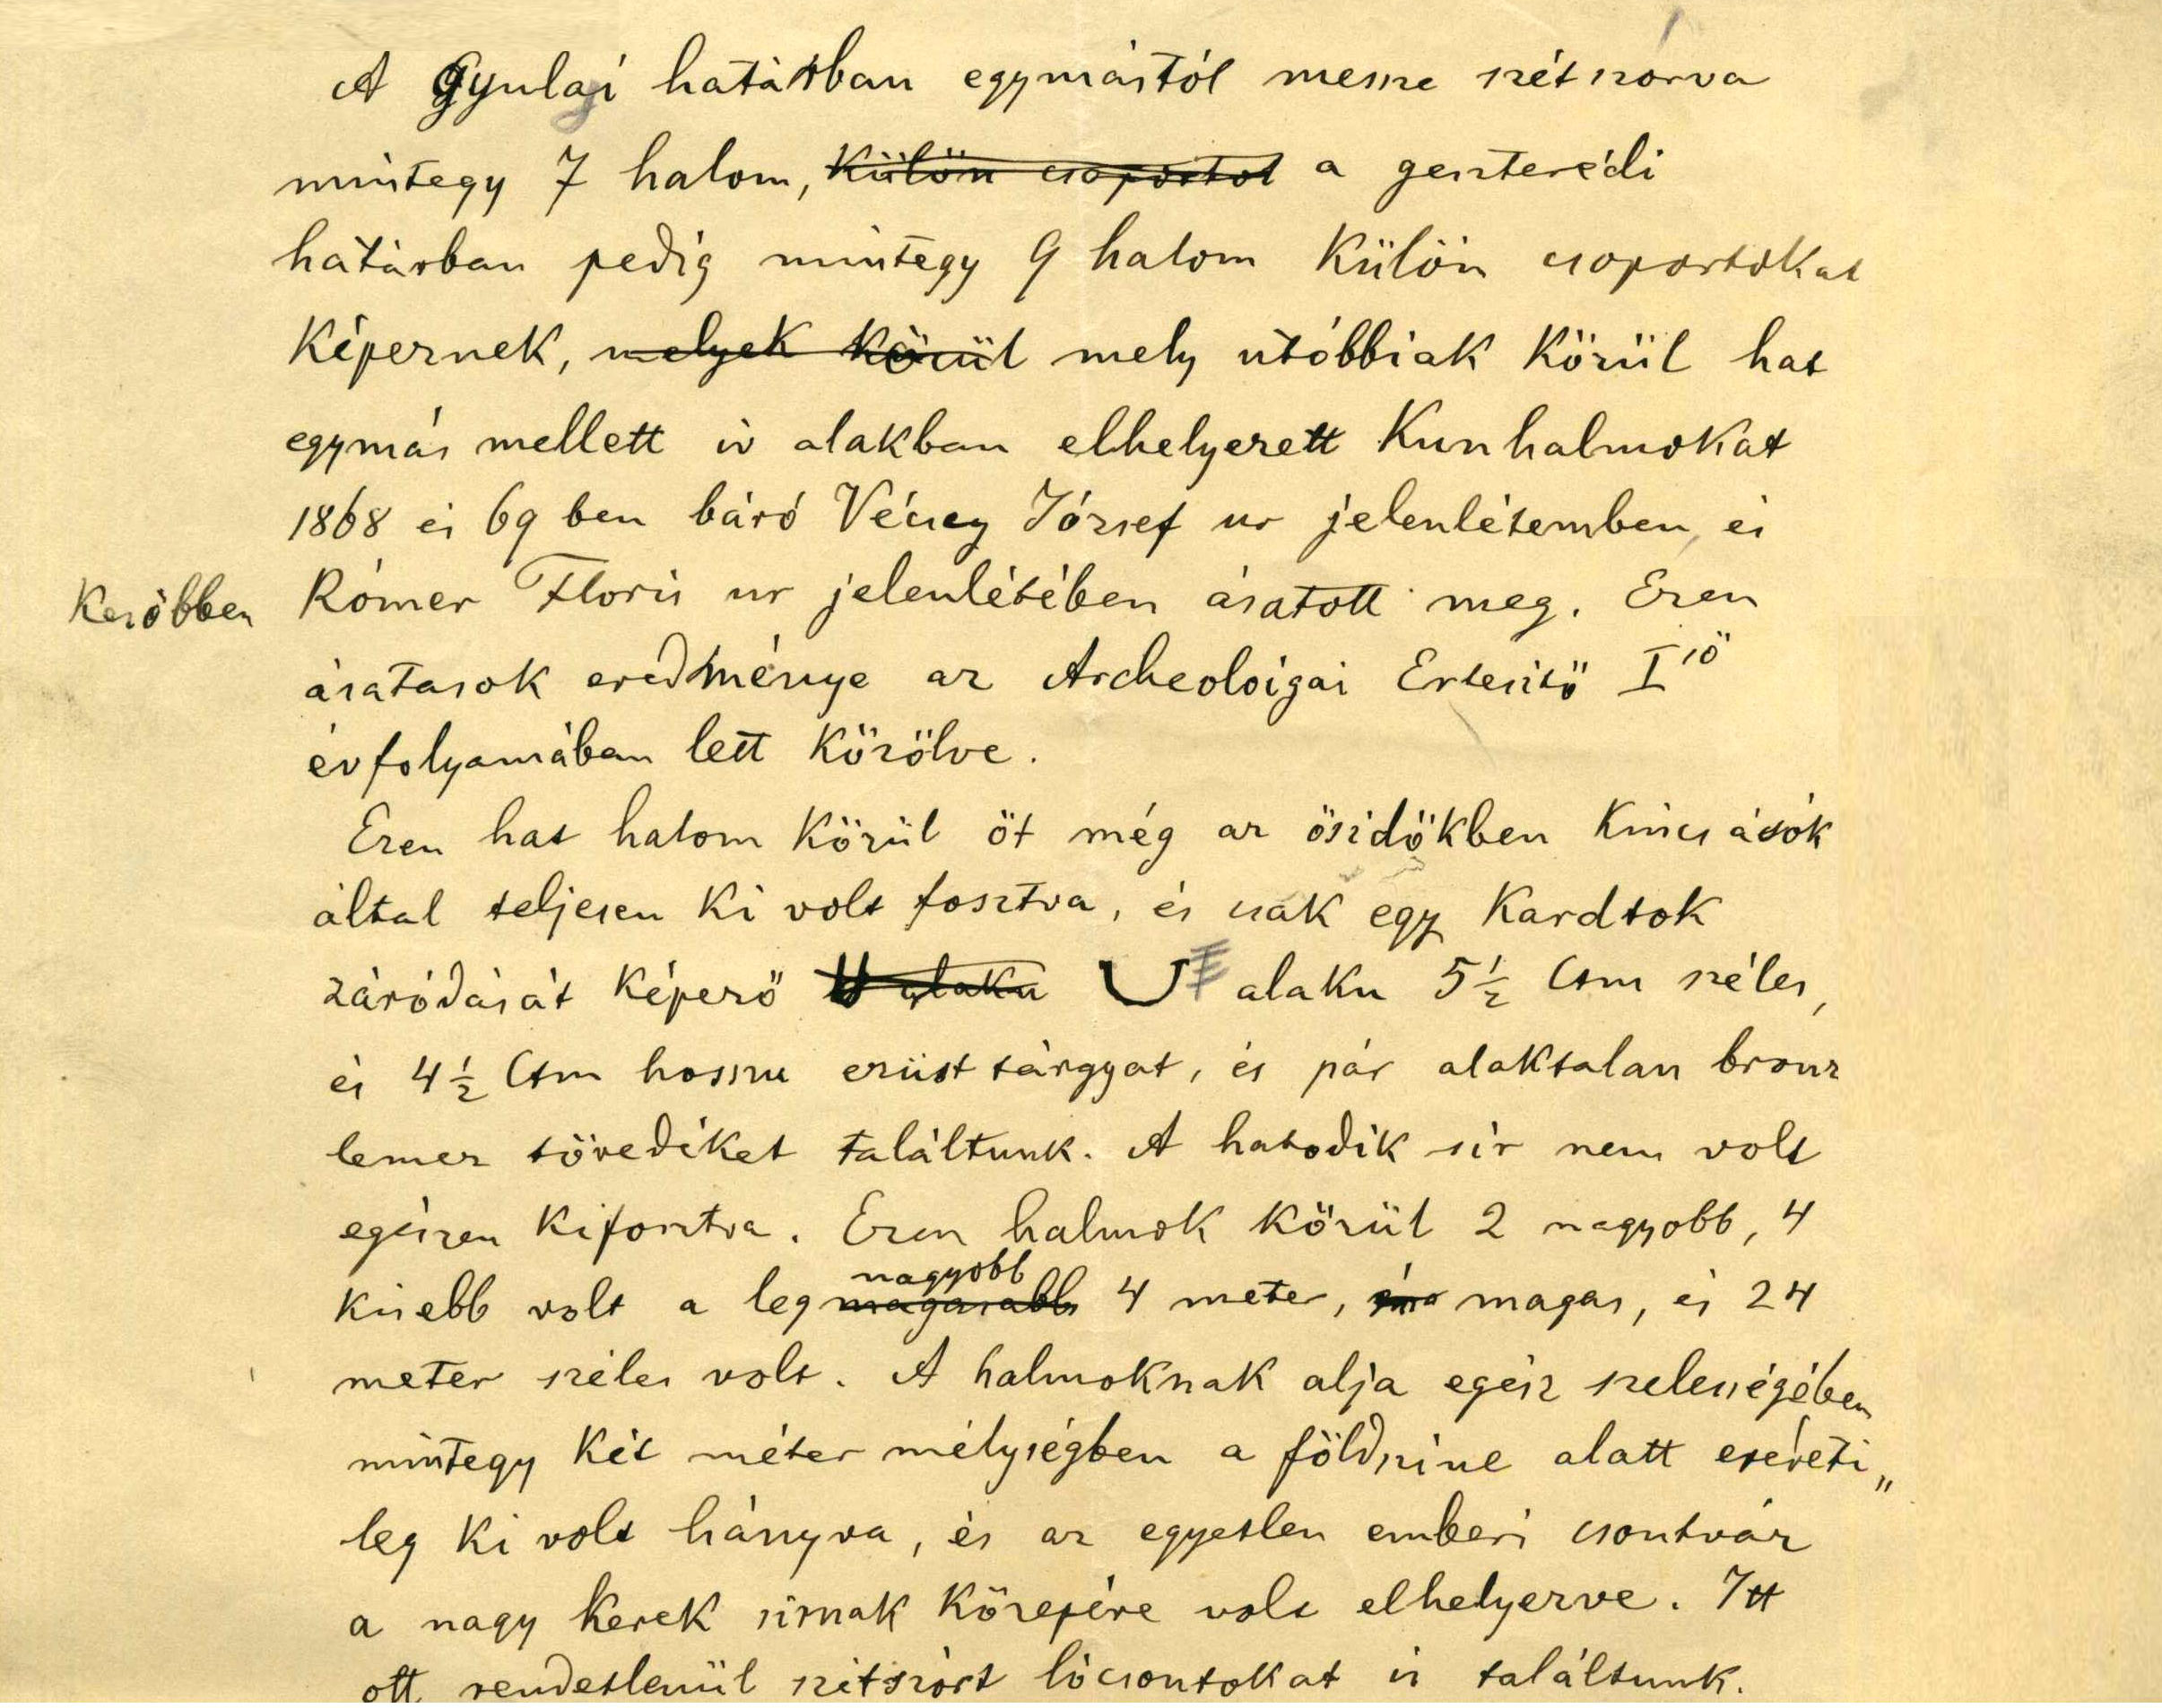 A Gyulai határban egymástól messze szétszórva
mintegy 7 halom, külön csoportot a geszterédi
határban pedig mintegy 9 halom külön csoportokat
képeznek, melyek körül mely utóbbiak közül hat
egymás mellett ív alakban elhelyezett Kunhalmokat
1868 és 69 ben báró Vécsey József ur jelenlétemben, és
Később Rómer Floris ur jelenlétében ásatott meg. Ezen
ásatasok eredménye az Archeoloigai Ertesitö I ső
évfolyamában lett közölve.
Ezen hat halom közül öt még az ösidökben kincsásók
által teljesen ki volt fosztva, és csak egy kardtok
záródását képező U alaku U alaku 5½ Ctm széles,
és 4½ Ctm hosszu ezüst tárgyat, és pár alaktalan bronz
lemez töredéket találtunk. A hatodik sír nem volt
egészen kifosztva. Ezen halmok közül 2 nagyobb, 4
kisebb volt a leg magasabb nagyobb 4 meter, magas, és 24
meter széles volt. A halmoknak alja egész szelességében
mintegy két méter mélységben a földszine alatt eséreti„
leg ki volt hányva, és az egyetlen emberi csontváz
a nagy kerek sirnak közepére volt elhelyezve. Itt
ott rendetlenül szétszórt lócsontokat is találtunk.